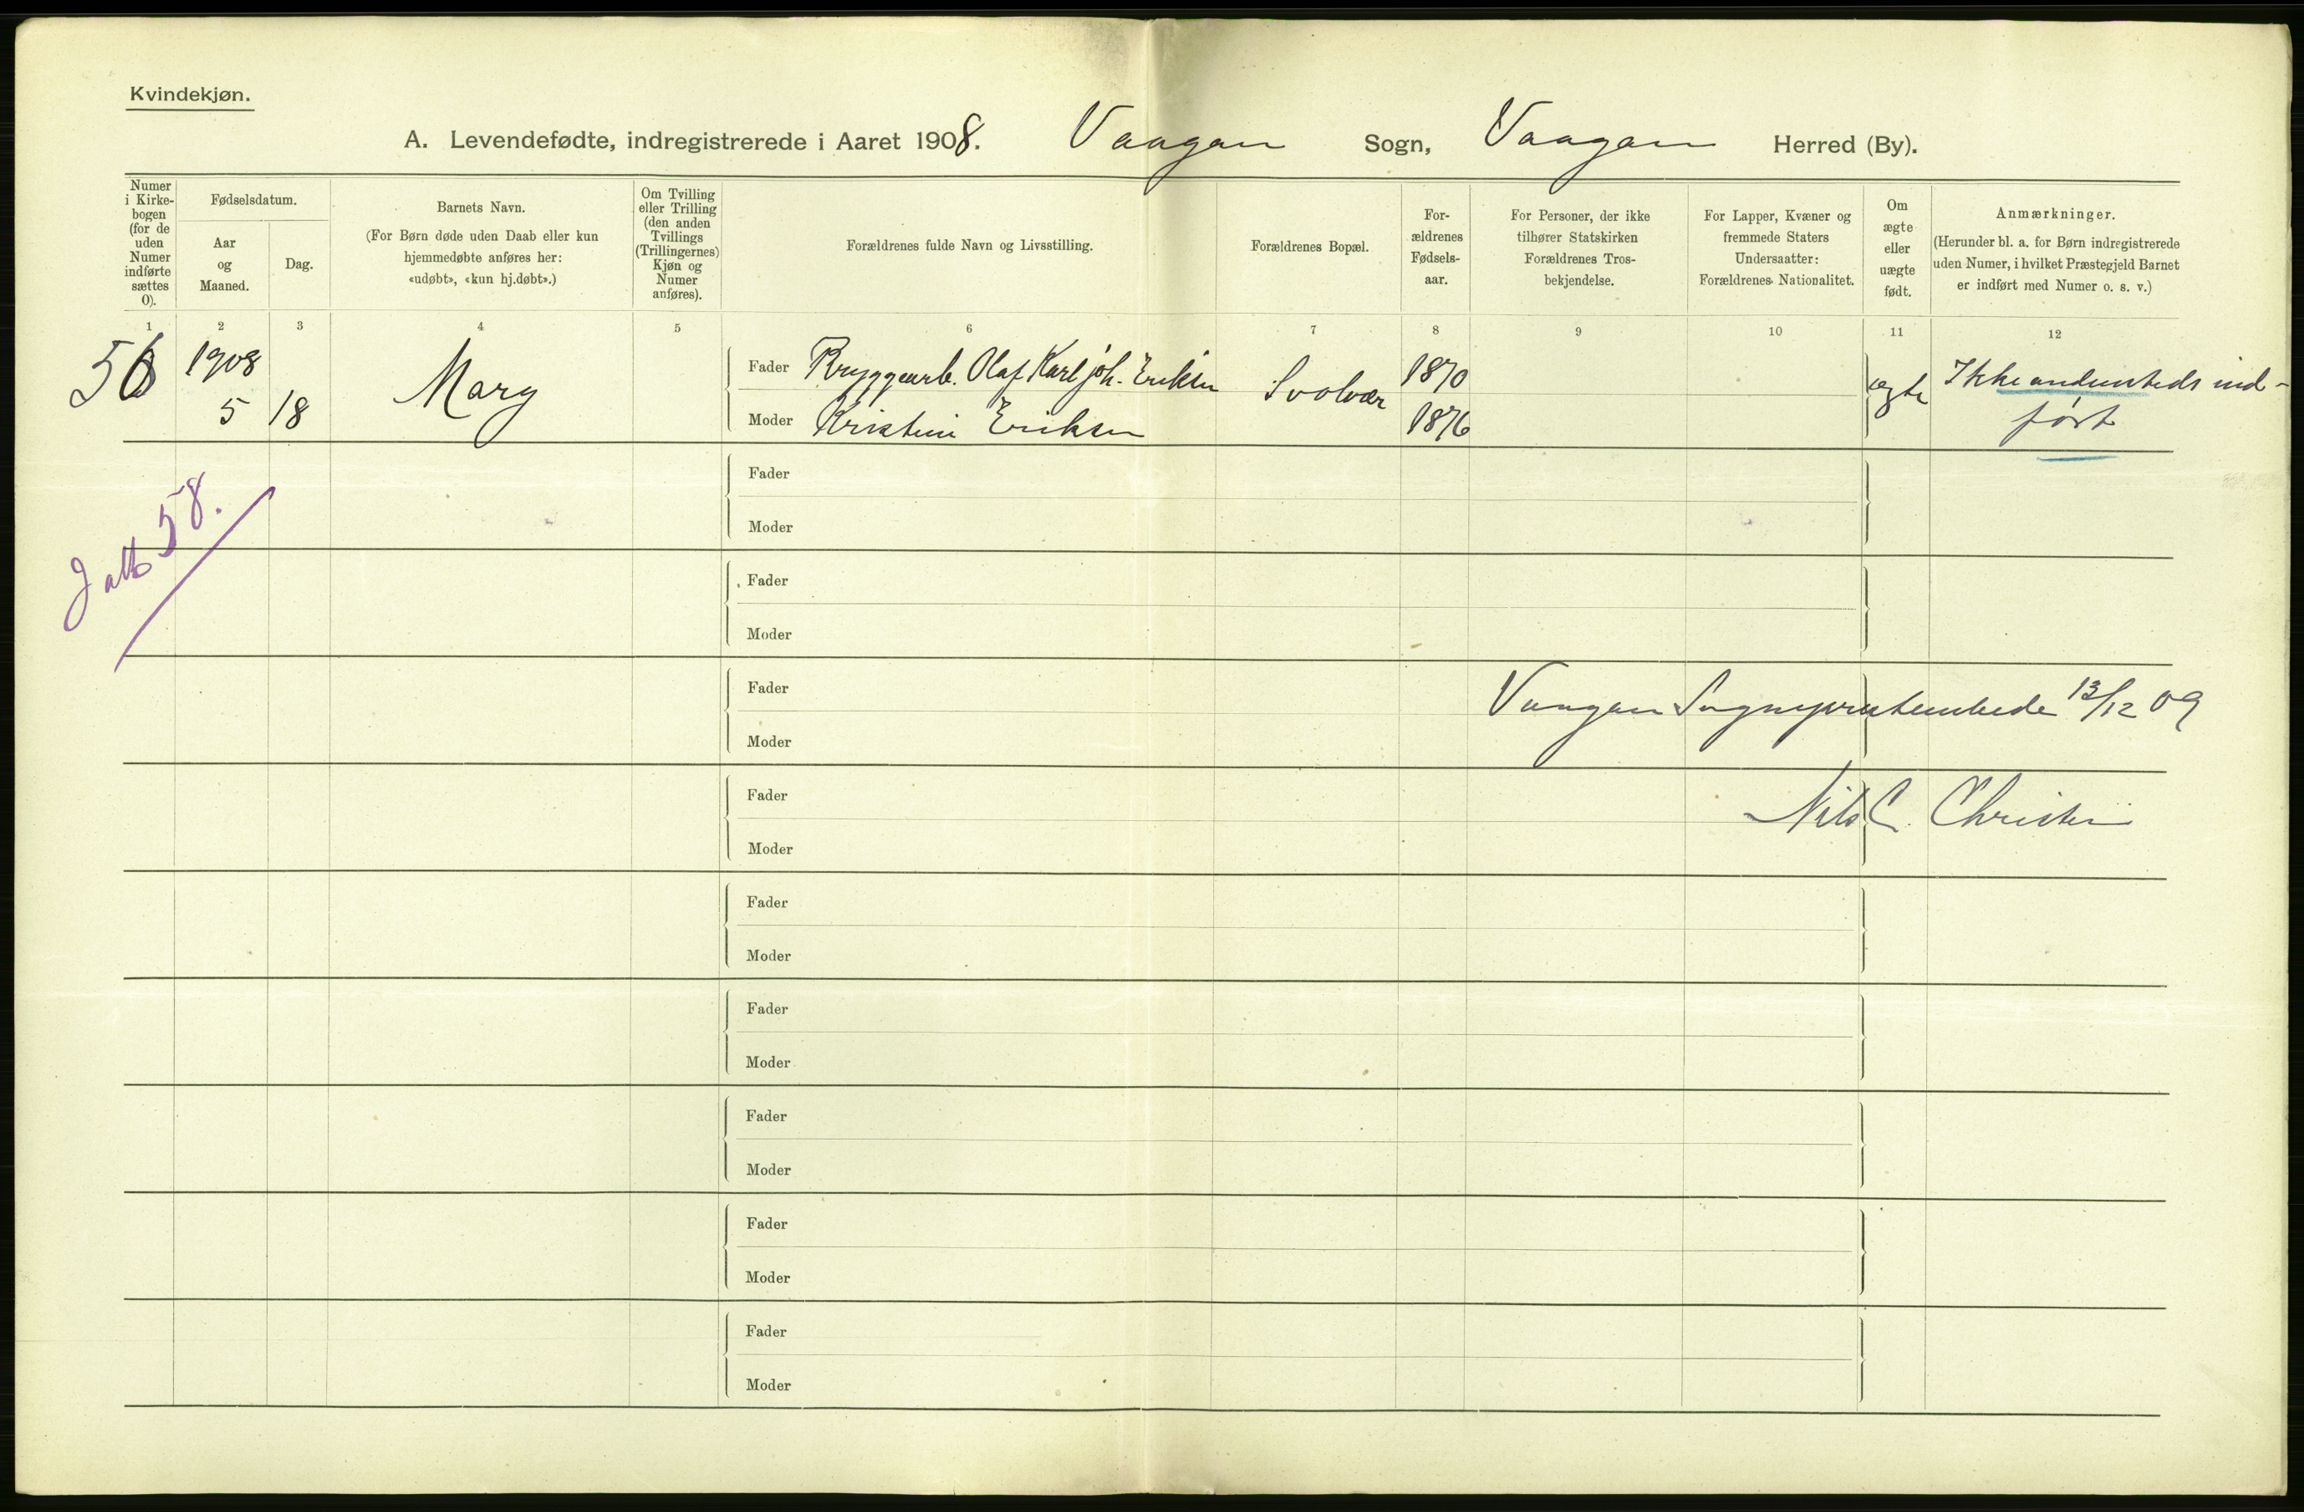 Kvindekjøn.
A. Levendefødte, indregistrerede i Aaret 1908. Vaagan Sogn, Vaagan Herred (By).
Numer i Kirke-bogen (for de uden Numer indførte sættes 0).
Fødselsdatum.
Aar og Maaned.
Dag.
Barnets Navn.
(For Børn døde uden Daab eller kun hjemmedøbte anføres her: «udøbt», «kun hj.døbt».)
Om Tvilling eller Trilling (den anden Tvillings (Trillingernes) Kjøn og Numer anføres).
Forældrenes fulde Navn og Livsstilling.
Forældrenes Bopæl.
For-ældrenes Fødsels-aar.
For Personer, der ikke tilhører Statskirken Forældrenes Tros-bekjendelse.
For Lapper, Kvæner og fremmede Staters Undersaatter: Forældrenes Nationalitet.
Om ægte eller uægte født.
Anmærkninger.
(Herunder bl. a. for Børn indregistrerede uden Numer, i hvilket Præstegjeld Barnet er indført med Numer o. s. v.)
1 2 3 4 5 6 7 8 9 10 11 12
1908 Fader Bryggearb. Olaf Karl Joh. Eriksen 1870 Ikke andensteds ind-
5 18 Mary Svolvær ægte
Moder Kristine Eriksen 1876 ført
I alt 58.
Fader
Moder
Fader
Moder
Fader Vaagan Sogneprestembede 13/12 09
Moder
Fader Nils C. Christen
Moder
Fader
Moder
Fader
Moder
Fader
Moder
Fader
Moder
Fader
Moder